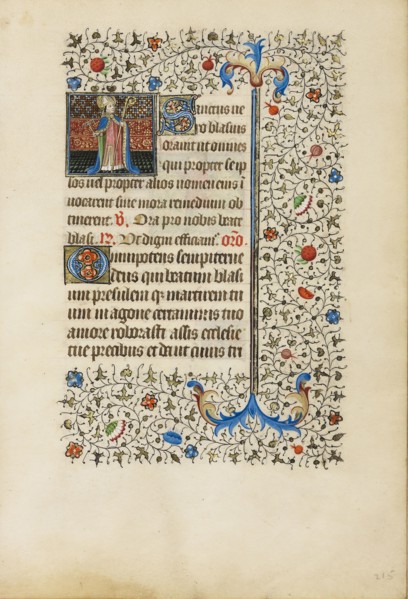 Sanctus ve
ro blasius
orauit ut omnes
qui propter seip
sos uel propter alios nomen eius i
uocarent sine mora remedium ob
tinerent. V. Ora pro nobis beate
blasi. R. Ut digni efficiam. oro.
Omnipotens sempiterne
deus qui beatum blasi
um presulem et martirem tu
um in agone certaminis tuo
amore roborasti assis ecclesie
tue precibus et da ut cuius tri
215